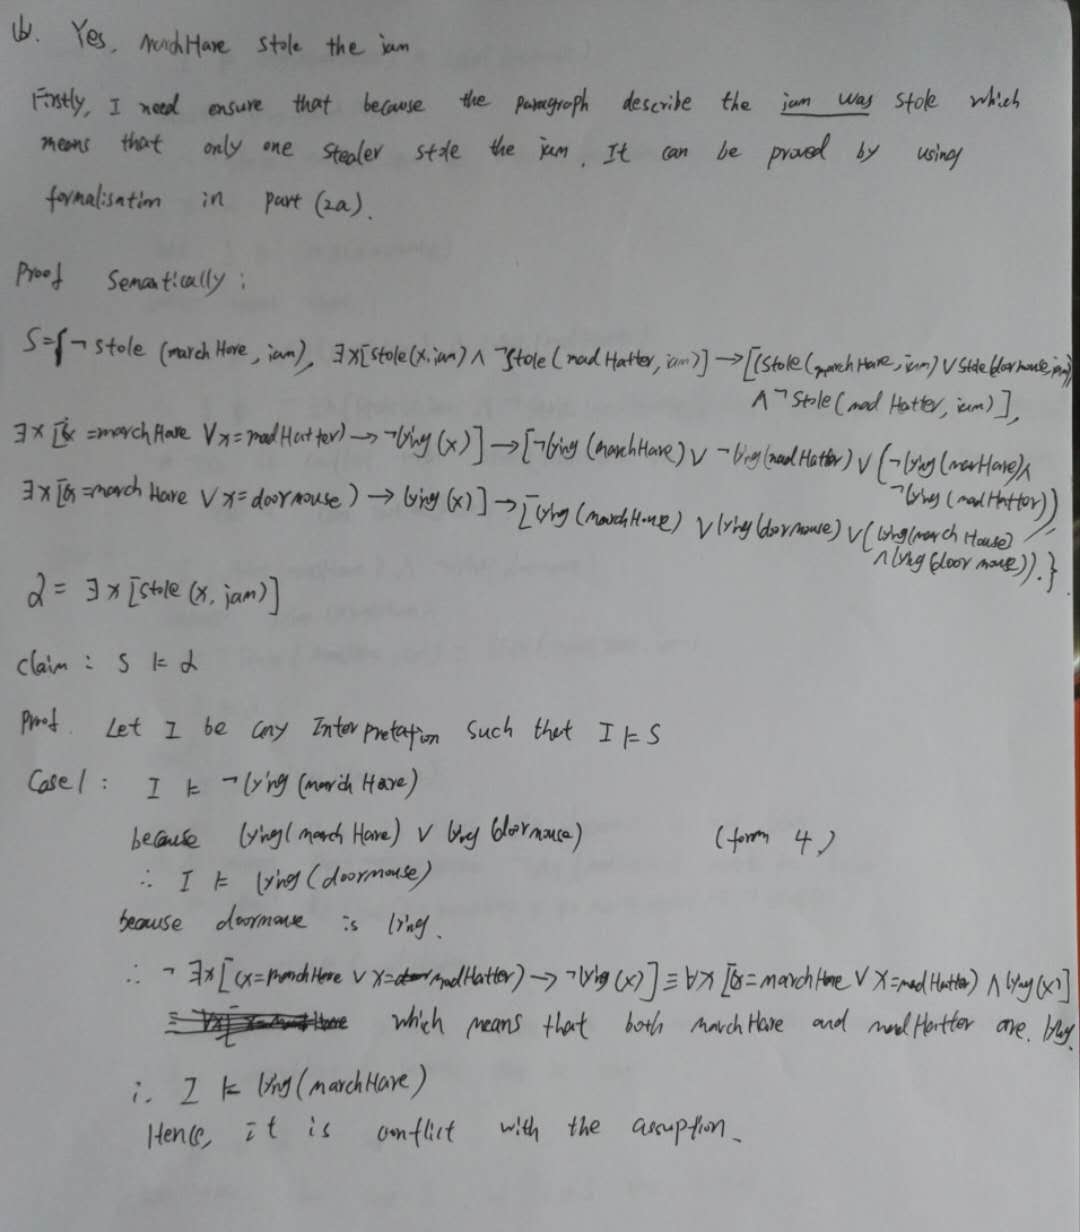 b. Yes, marchHare stole the jam
Firstly, I need ensure that because the paragraph describe the jam was stole which
means that only one stealer stole the jam. It can be proved by using
formalisation in part (2a).
Proof Semantically :
S={¬stole (marchHare, jam), ∃x[stole(x, jam) ∧ ¬Stole(madHatter, jam)] → [(Stole(marchHare, jam) ∨ Stole(doormouse, jam))
∧ ¬Stole(madHatter, jam)],
∃x [(x=marchHare ∨ x=madHatter) → ¬lying(x)] → [¬lying(marchHare) ∨ ¬lying(madHatter) ∨ (¬lying(marHare) ∧
¬lying(madHatter))
∃x[(x=marchHare ∨ x=doormouse) → lying(x)] → [lying(marchHouse) ∨ lying(doormouse) ∨ (lying(march House)
∧ lying(doormouse)).}
α = ∃x[stole(x, jam)]
claim : S ⊨ α
Proof. Let I be any Interpretation such that I ⊨ S
Case1 : I ⊨ ¬lying (march Hare)
because lying(march Hare) ∨ lying(doormouse) (form 4)
∴ I ⊨ lying(doormouse)
because doormouse is lying.
∴ ¬∃x[(x=marchHare ∨ x=madHatter) → ¬lying(x)] ≡ ∀x [(x=marchHare ∨ x=madHatter) ∧ lying(x)]
which means that both marchHare and madHatter are lying.
∴ I ⊨ lying(marchHare)
Hence, it is conflict with the assuption.